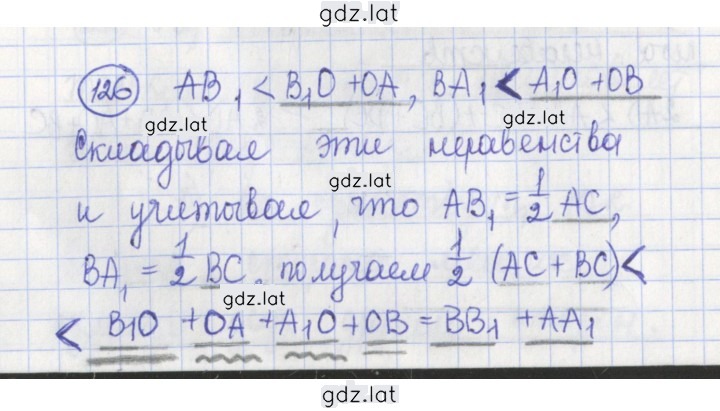 gdz.lat
126 AB₁ < B₁O + OA, BA₁ < A₁O + OB
gdz.lat gdz.lat
Складывая эти неравенства
gdz.lat
и учитывая, что AB₁ = 1/2 AC,
BA₁ = 1/2 BC. получаем 1/2 (AC + BC) <
gdz.lat
< B₁O + OA + A₁O + OB = BB₁ + AA₁
gdz.lat